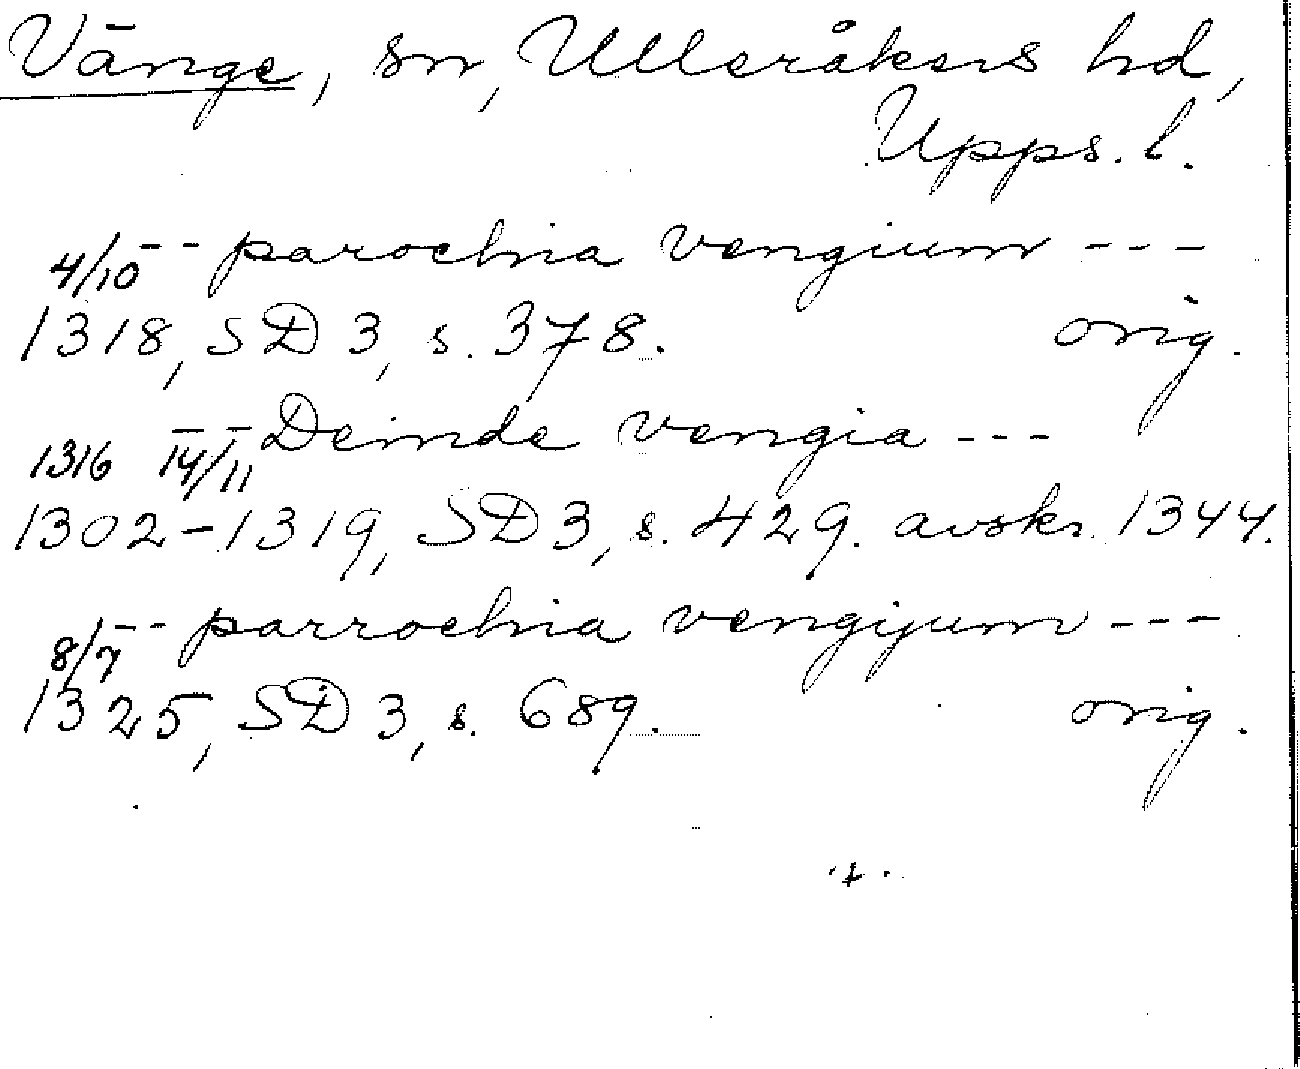 Vänge, sn, Ulleråkers hd,
Upps. l.
-- parochia vengium ---
4/10
1318, SD 3, s. 378. orig.
-- Deinde vengia ---
1316 14/11
1302-1319, SD 3, s. 429. avskr. 1344.
-- parrochia vengijum ---
8/7
1325, SD 3, s. 689. orig.